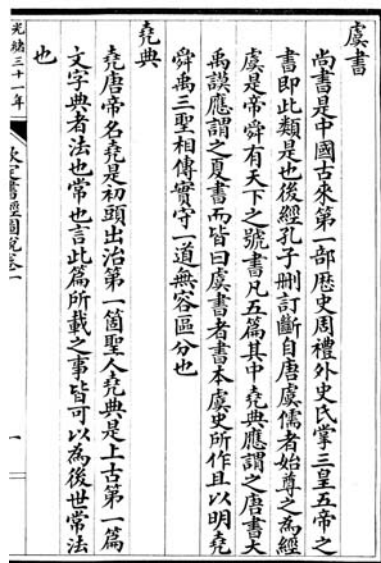 虞書
尚書是中國古來第一部歷史周禮外史氏掌三皇五帝之
書即此類是也後經孔子刪訂斷自唐虞儒者始尊之為經
虞是帝舜有天下之號書凡五篇其中堯典應謂之唐書大
禹謨應謂之夏書而皆曰虞書者書本虞史所作且以明堯
舜禹三聖相傳實守一道無容區分也
堯典
堯唐帝名堯是初頭出治第一箇聖人堯典是上古第一篇
文字典者法也常也言此篇所載之事皆可以為後世常法
也
光緒三十一年
欽定書經圖說卷一
一